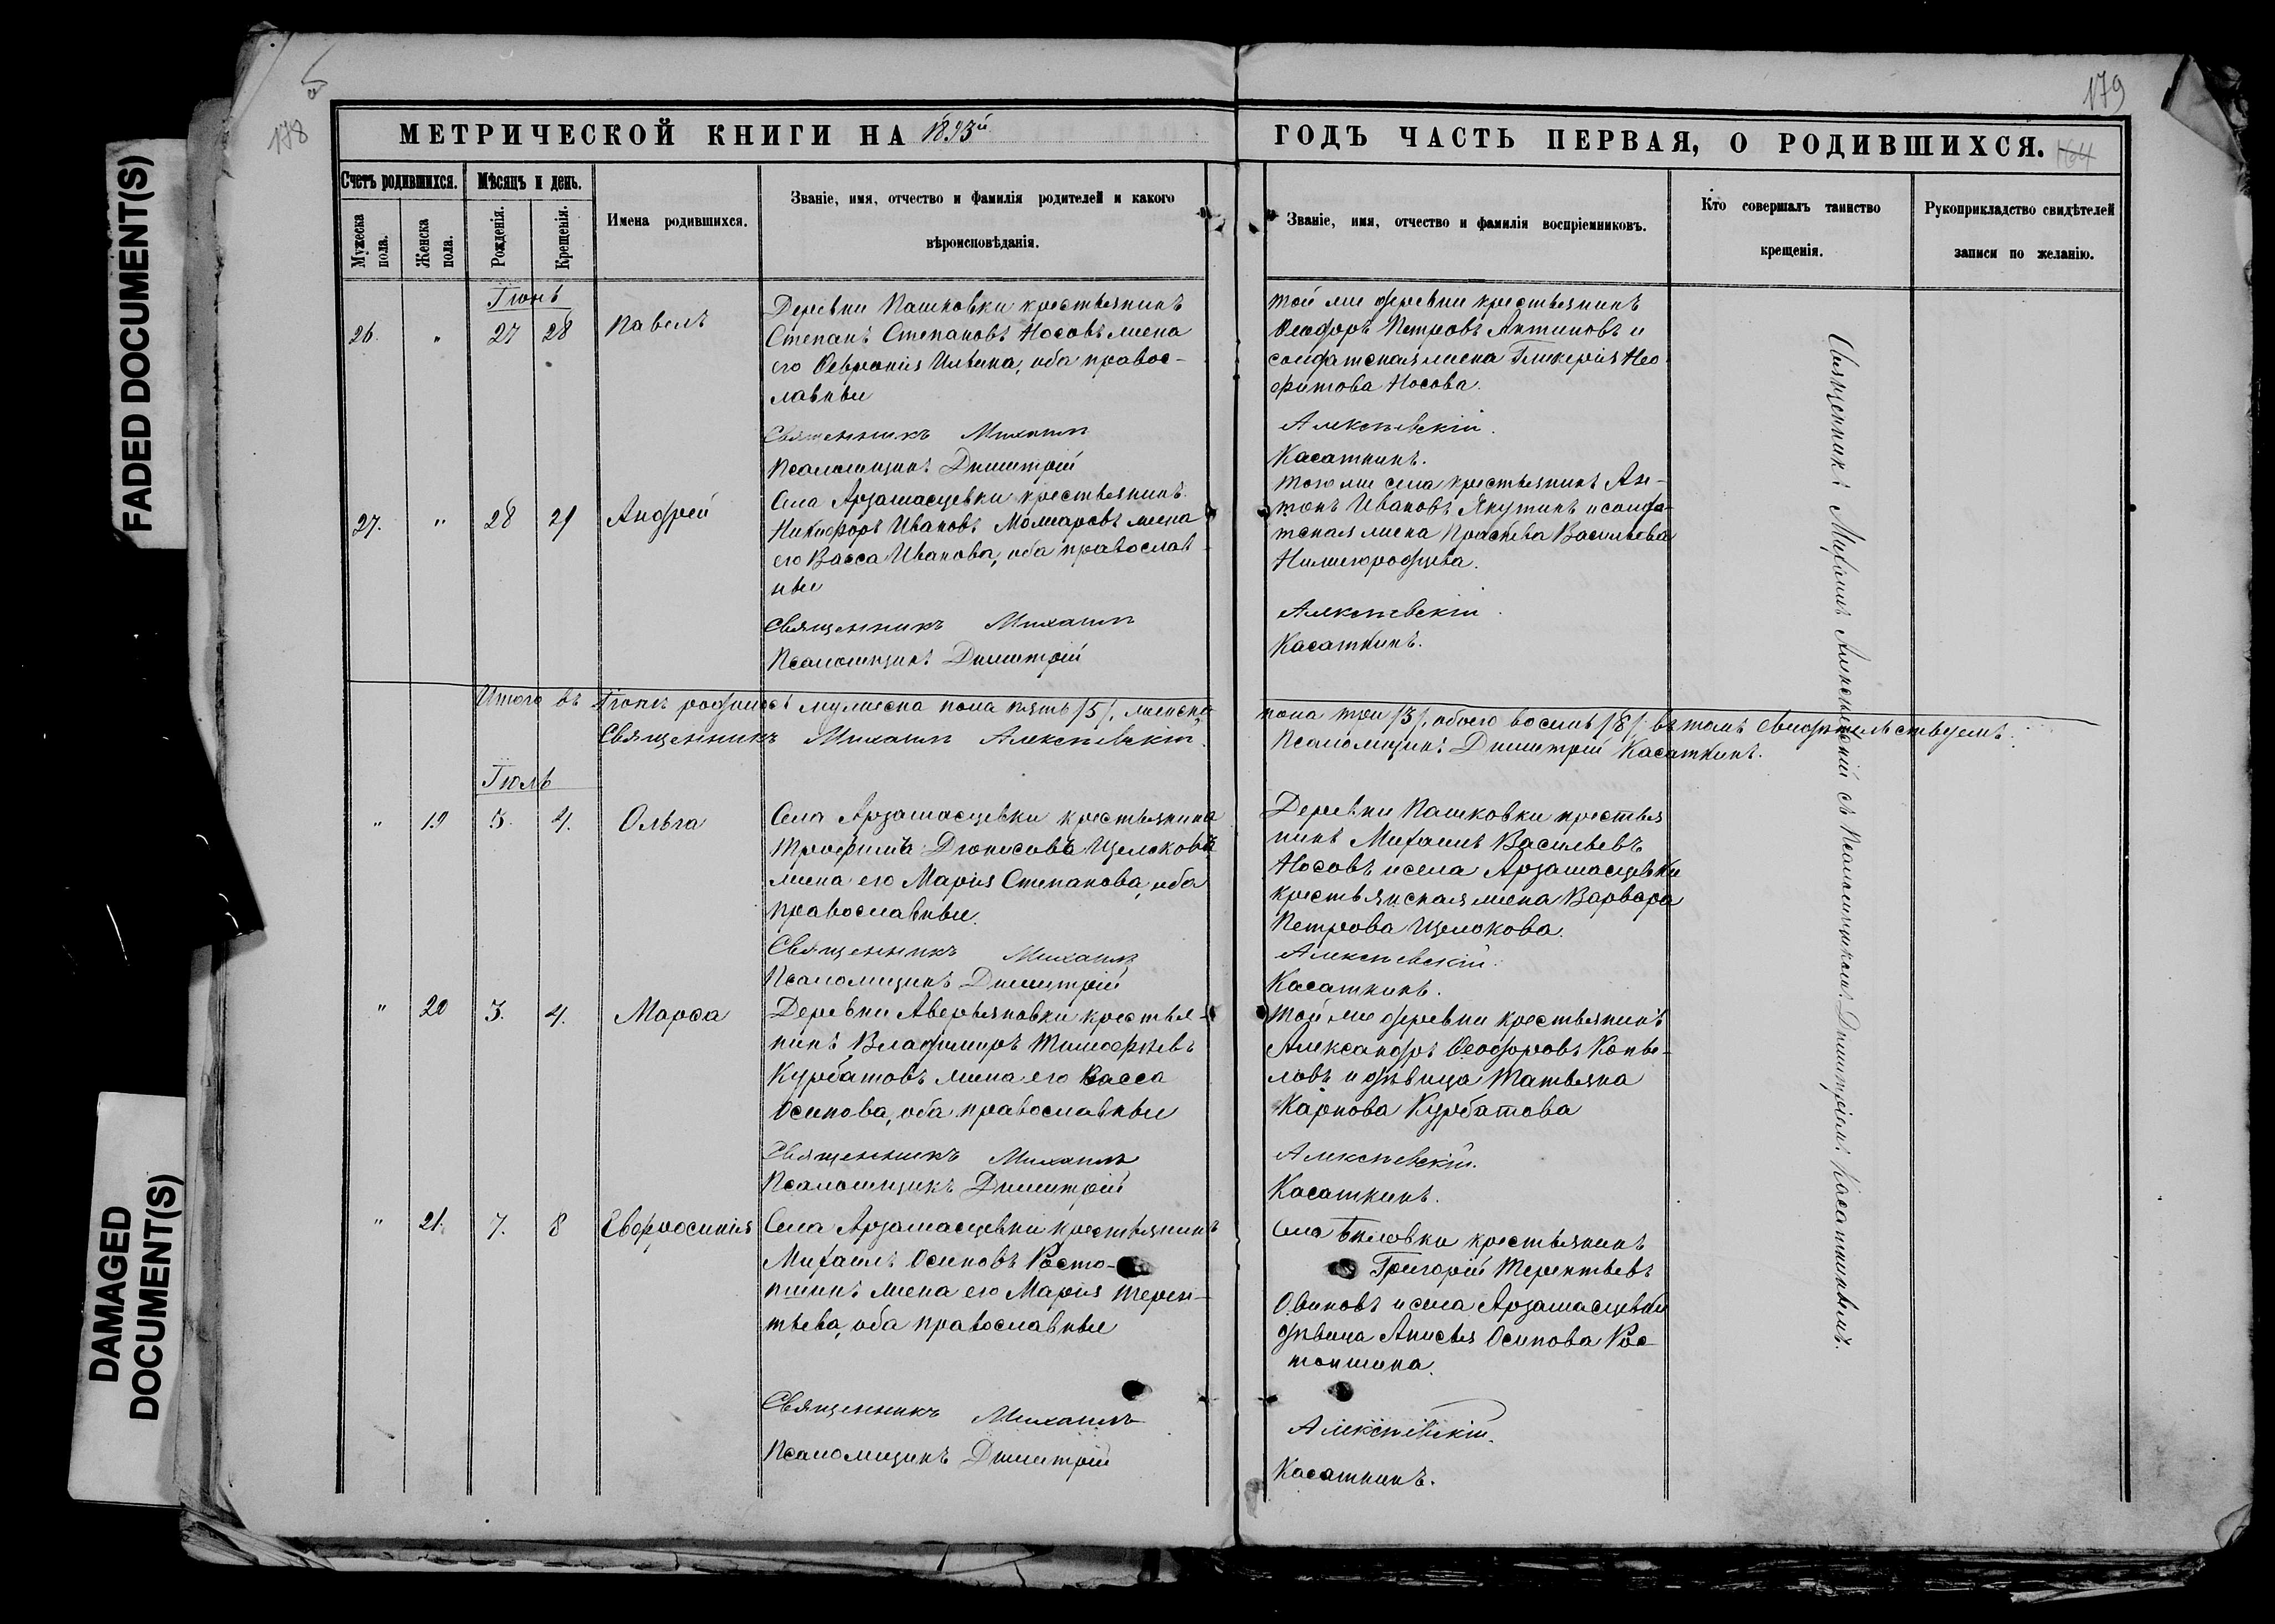 FADED DOCUMENT(S)
DAMAGED DOCUMENT(S)
178
179
164
МЕТРИЧЕСКОЙ КНИГИ НА 1893й
ГОДЪ ЧАСТЬ ПЕРВАЯ, О РОДИВШИХСЯ.
Счетъ родившихся.
Мѣсяцъ и день.
Мужеска пола.
Женска пола.
Рожденія.
Крещенія.
Имена родившихся.
Званіе, имя, отчество и фамилія родителей и какого
вѣроисповѣданія.
Званіе, имя, отчество и фамилія воспріемниковъ.
Кто совершалъ таинство
крещенія.
Рукоприкладство свидѣтелей
записи по желанію.
Іюнь
26. " 27 28 Павелъ
Деревни Пашковки крестьянинъ
Степанъ Степановъ Носовъ жена
его Ѳевронія Ильина, оба правос-
лавные
Священникъ Михаилъ
Псаломщикъ Димитрій
той же деревни крестьянинъ
Ѳеодоръ Петровъ Антиповъ и
солдатская жена Гликерія Нео
фитова Носова.
Алексѣевскій.
Касаткинъ.
27. " 28 29 Андрей
Села Арзамасцевки крестьянинъ
Никифоръ Ивановъ Монаровъ жена
его Васса Иванова, оба православ
ные
Священникъ Михаилъ
Псаломщикъ Димитрій
того же села крестьянинъ Ан-
тонъ Ивановъ Якутинъ и солда-
тская жена Прасковья Васильева
Нижегородцева.
Алексѣевскій.
Касаткинъ.
Итого въ Іюнѣ родилось мужеска пола пять /5/, женска
пола три /3/, обоего восемь /8/, въ томъ свидѣтельствуемъ:
Священникъ Михаилъ Алексѣевскій.
Псаломщикъ Димитрій Касаткинъ.
Іюль
" 19 3. 4. Ольга
Села Арзамасцевки крестьянина
Трофима Діонисова Щелокова
жена его Марія Степанова, оба
православные.
Священникъ Михаилъ
Псаломщикъ Димитрій
Деревни Пашковки крестья
нинъ Михаилъ Васильевъ
Носовъ и села Арзамасцевки
крестьянская жена Варвара
Петрова Щелокова.
Алексѣевскій.
Касаткинъ.
" 20 3. 4. Марѳа
Деревни Аверьяновки крестья-
нинъ Владимиръ Тимоѳѣевъ
Курбатовъ жена его Васса
Осипова, оба православные
Священникъ Михаилъ
Псаломщикъ Димитрій
той же деревни крестьянинъ
Александръ Ѳеодоровъ Копы-
ловъ и дѣвица Татьяна
Карпова Курбатова
Алексѣевскій.
Касаткинъ.
" 21. 7. 8 Евфросинія
Села Арзамасцевки крестьянинъ
Михаилъ Осиповъ Росто-
пшинъ жена его Марія Терен-
тьева, оба православные
Священникъ Михаилъ
Псаломщикъ Димитрій
Села крестьянинъ
Григорій Терентьевъ
Овиновъ и села Арзамасцевки
дѣвица Анисья Осипова Рос-
топшина.
Алексѣевскій.
Касаткинъ.
Священникъ Михаилъ Алексѣевскій съ Псаломщикомъ Димитріемъ Касаткинымъ.